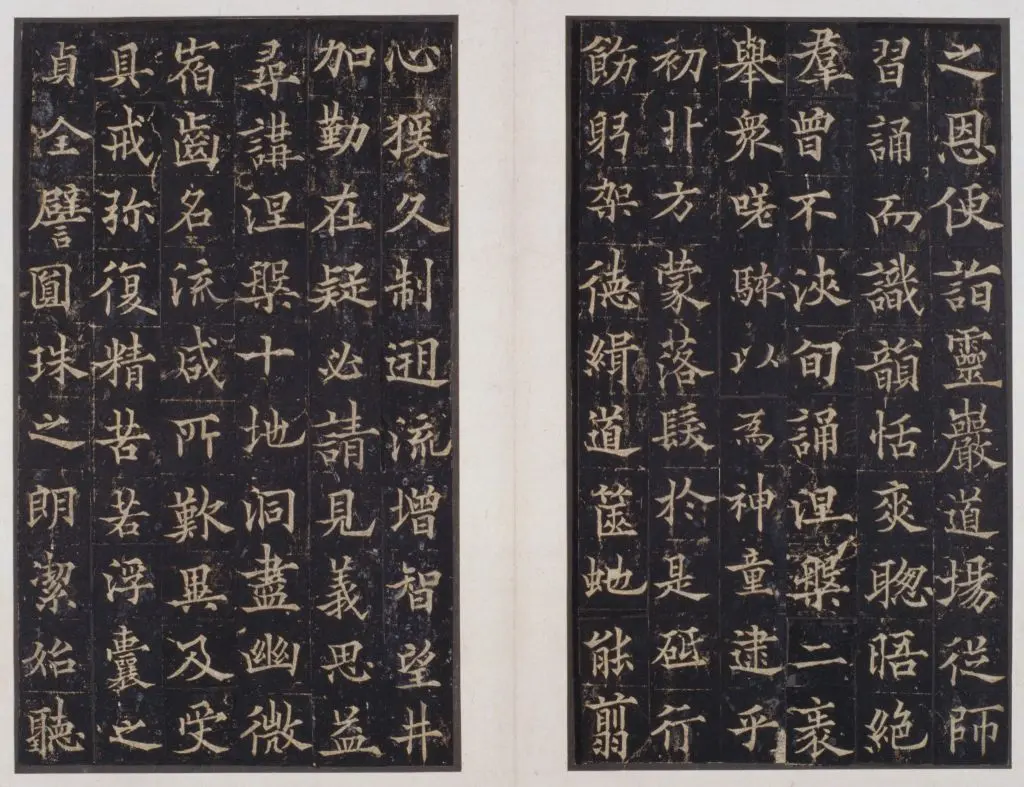 之恩便詣靈巖道場從師
習誦而識韻恬爽聰晤絕
羣曾不浹旬誦涅槃二袠
舉眾嗟駭以為神童逮乎
初丱方蒙落髮於是砥行
飭躬架德緝道篋虵能翦
心猨久制迴流增智望井
加勤在疑必請見義思益
尋講涅槃十地洞盡幽微
宿齒名流咸所歎異及受
具戒弥復精苦若浮囊之
貞全譬圓珠之朗潔始聽